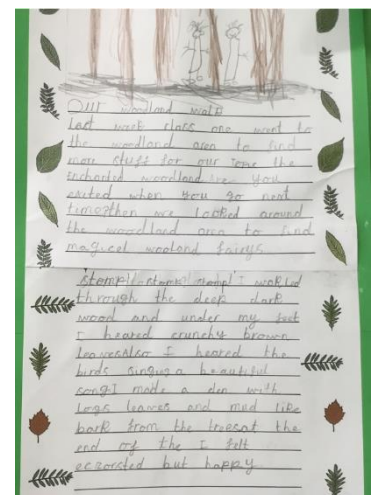 Our woodland walk
Last week class one went to
the woodland area to find
more stuff for our tope the
enchanted woodland.are you
exited when you go next
time?then we looked around
the woodland area to find
magicel wooland fairys.
stomp! stomp! stomp! I walked
through the deep dark
wood and under my feet
I heared crunchy brown
leaves.Also I heared the
birds singing a beautiful
song.I made a den with
logs leaves and mud like
bark from the trees.at the
end of the I felt
but happy.